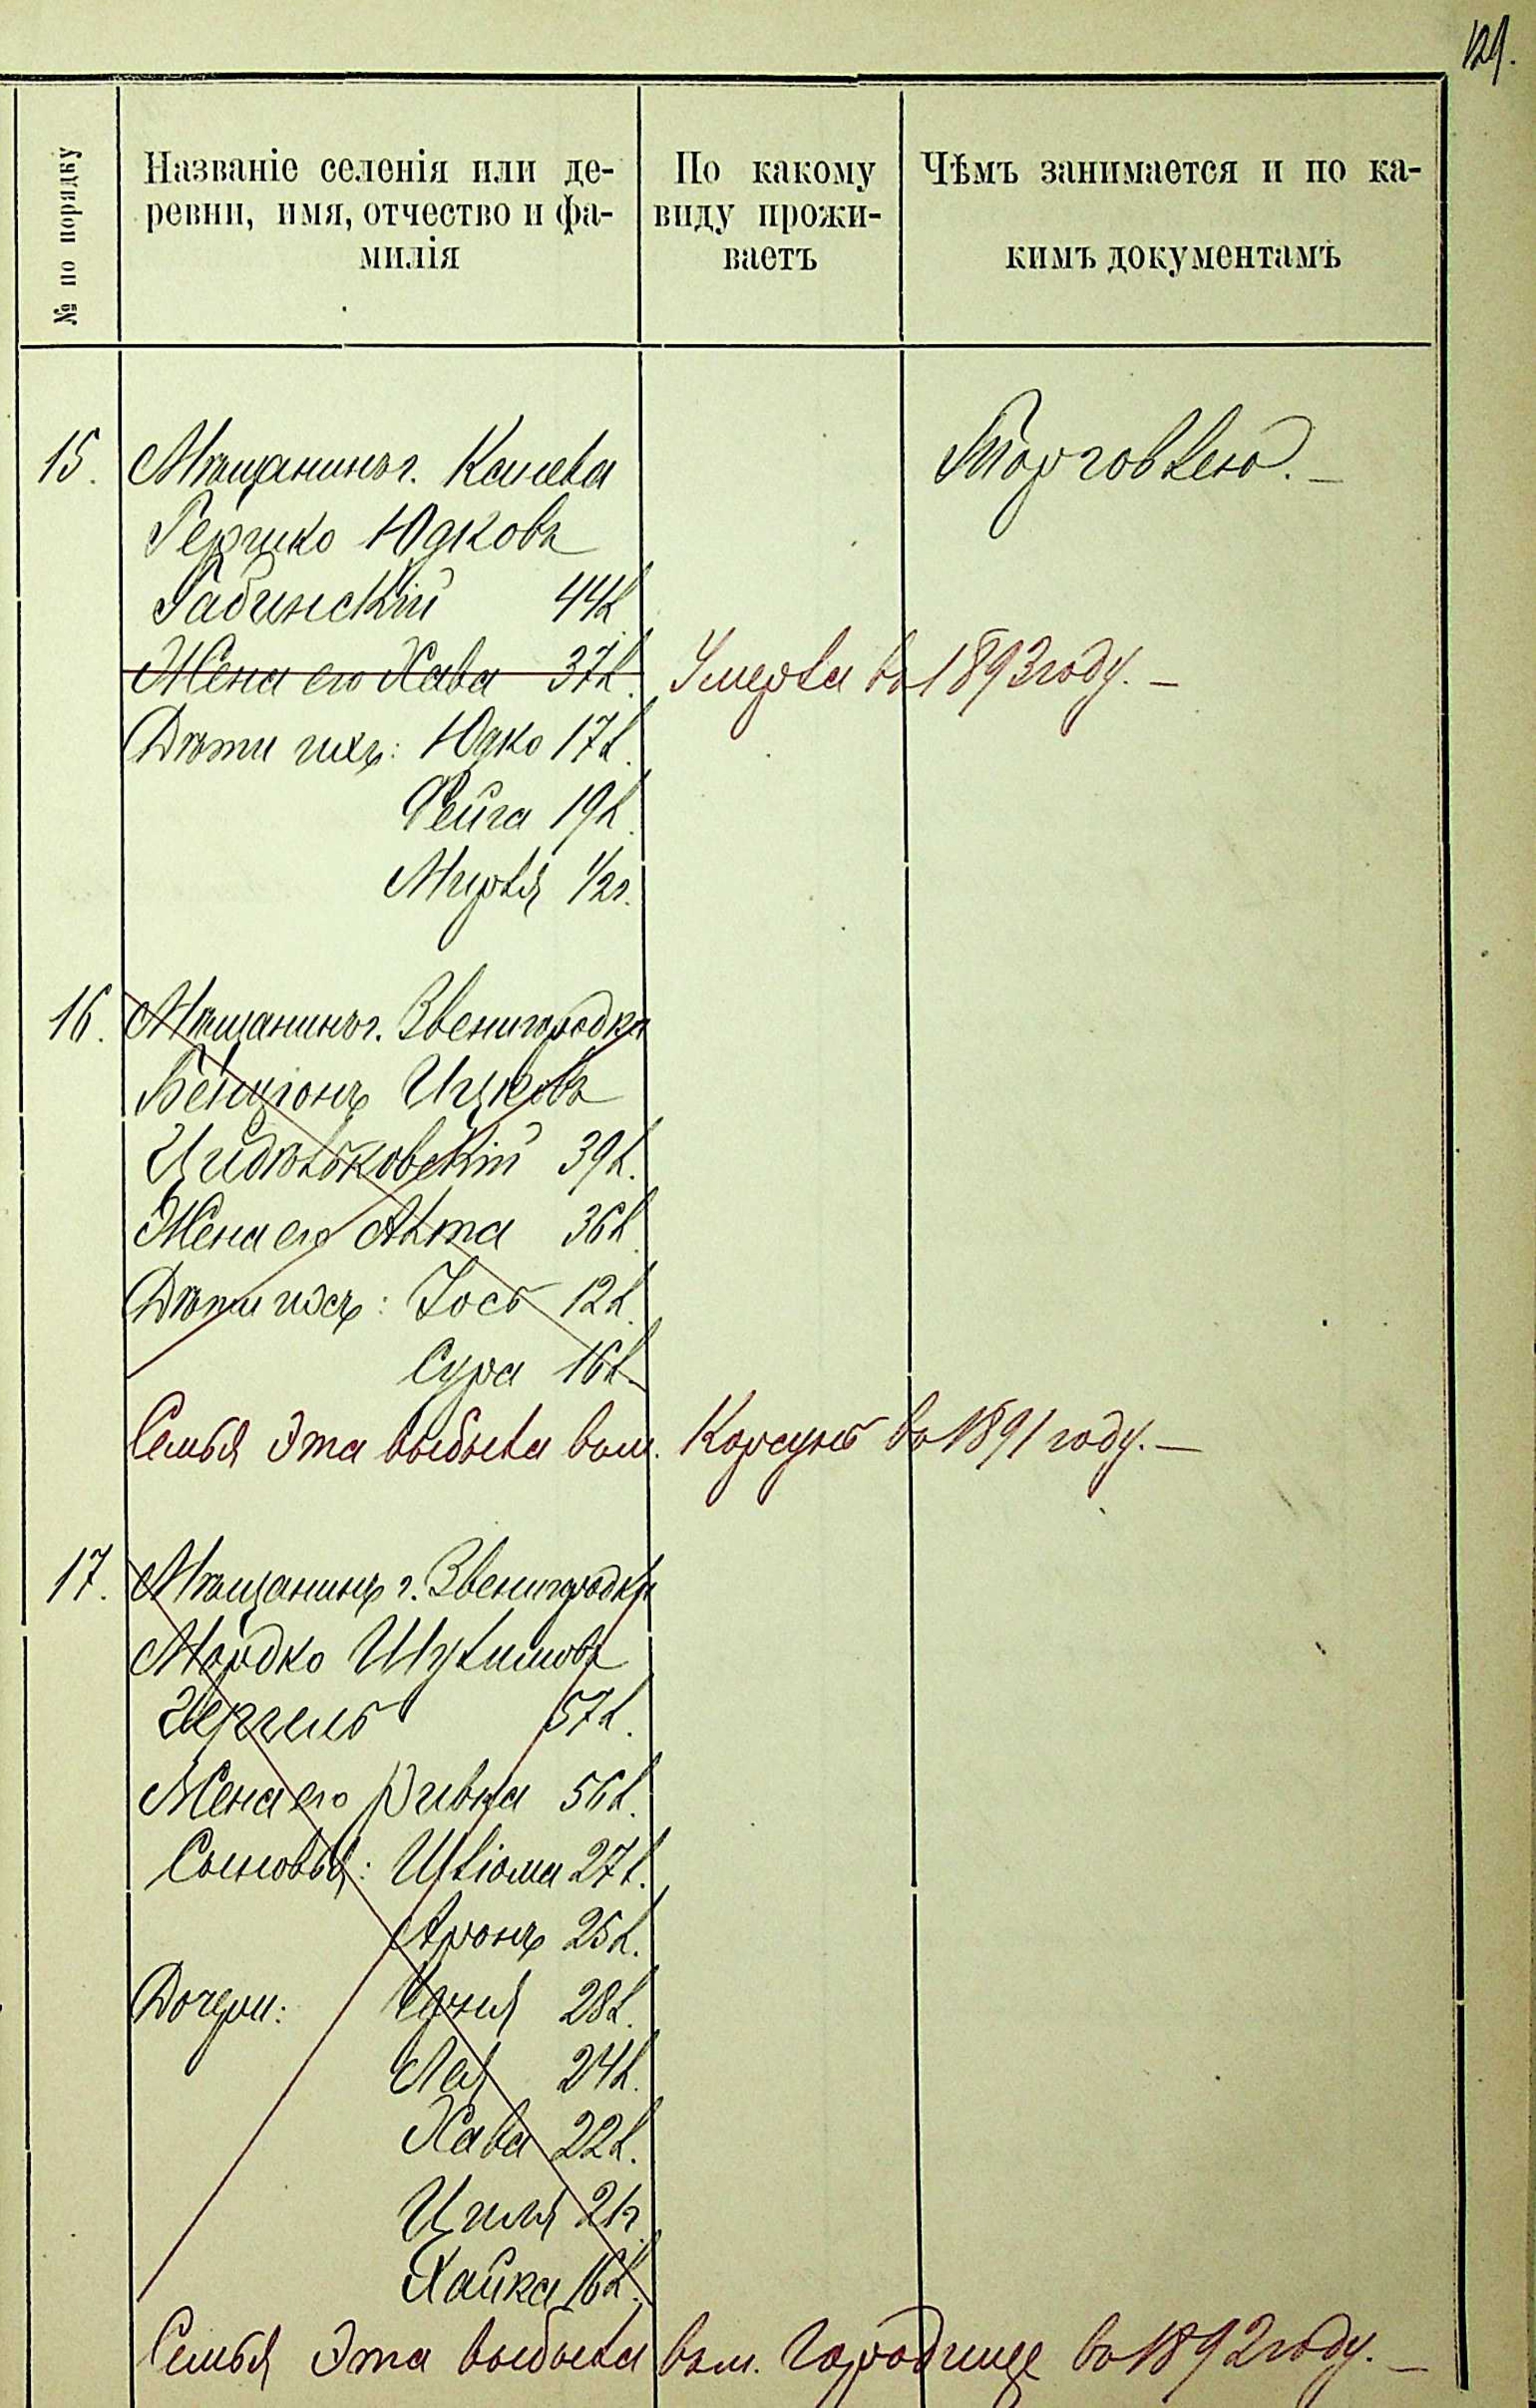 129.
№ по порядку
Названіе селенія или де-
ревни, имя, отчество и фа-
милія
По какому
виду прожи-
ваетъ
Чѣмъ занимается и по ка-
кимъ документамъ
15. Мѣщанинъ г. Канева Торговлею. —
Гершко Юдковъ
Рабинскій 44 л.
Жена его Хава 37 л. Умерла въ 1893 году. —
Дѣти ихъ: Юдко 17 л.
Фейга 19 л.
Мирля 1/2 г.
16. Мѣщанинъ г. Звенигородки
Бенціонъ Ицковъ
39 л.
Жена его Алта 36 л.
Дѣти ихъ: Іось 12 л.
Сура 16 л.
Семья эта выбыла въ м. Корсунь въ 1891 году. —
17. Мѣщанинъ г. Звенигородки
Мордко Шулимовъ
57 л.
Жена его Ривка 56 л.
Сыновья: Шліома 27 л.
Аронъ 25 л.
Дочери: 28 л.
Лея 24 л.
Хава 22 л.
Циля 21 г.
Хайка 16 л.
Семья эта выбыла въ м. Городище въ 1892 году. —